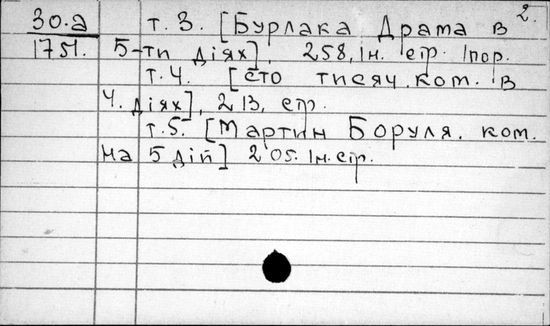 2.
30.а т. 3. [Бурлака Драма в
1751. 5-ти діях], 258, ін. стр. Iпор.
т. 4. [сто тисяч. ком. в
4. діях], 213, стр.
т. 5. [Мартин Боруля. ком.
на 5 дій] 205. Iн. стр.